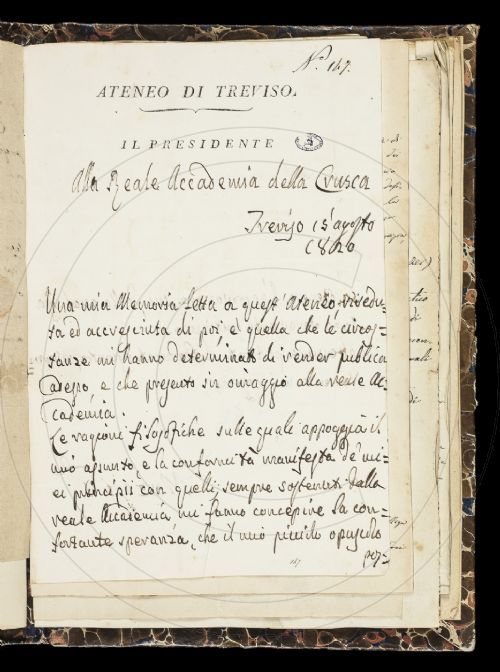 N.º 147.
ATENEO DI TREVISO.
IL PRESIDENTE
Alla Reale Accademia della Crusca
Treviso 15 agosto
1820
Una mia Memoria letta a quest' Ateneo rivedu-
ta ed accresciuta di poi è quella che le circos-
tanze mi hanno determinato di render publica
adesso, e che presento in omaggio alla reale Ac-
cademia.
Le ragioni filosofiche sulle quali appoggia il
mio assunto, e la conformità manifesta de' mi-
ei principii con quelli sempre sostenuti dalla
reale Accademia mi fanno concepire la con-
fortante speranza, che il mio piccolo opuscolo
pos-
147